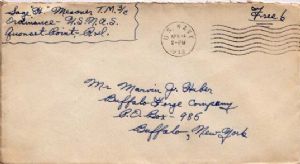 "Sage H." Messner T.M. 3/c
Ordinance - U.S.N.A.S.
Quonset Point - R.I.
Free
U.S. NAVY
Mr. Marvin J. Huber
Buffalo Forge Company
P.O. Box - 985
Buffalo, New York